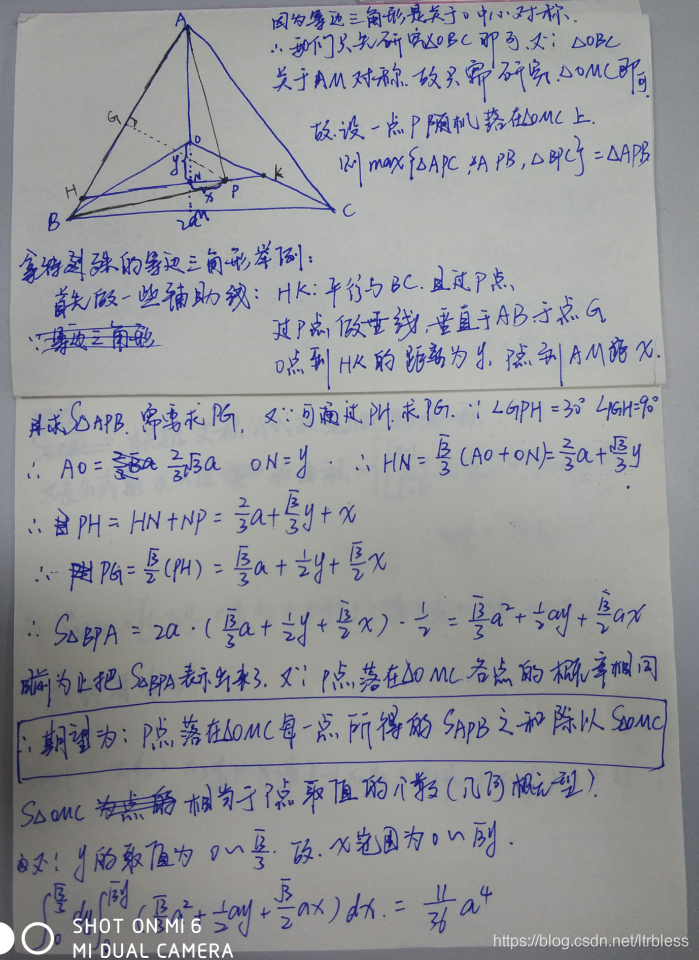 因为等边三角形是关于O中心对称.
∴我们只先研究△OBC即可 又∵ △OBC
关于AM对称. 故只需研究 △OMC即可
故设一点P随机落在△OMC上.
则 max{△APC, △APB, △BPC} = △APB
A
G
O
y
H
N
x
P
K
B
2a
M
C
拿特殊的等边三角形举例:
首先做一些辅助线: HK: 平行与BC. 且过P点
∵ 等边三角形
过P点做垂线 垂直于AB于点G
O点到HK的距离为y. P点到AM距x.
求S△APB 需要求PG, 又∵可通过PH求PG. ∵∠GPH=30° ∠PGH=90°
∴ AO = 2/3√3a ON=y ∴ HN = √3/3 (AO+ON) = 2/3 a + √3/3 y
∴ PH = HN+NP = 2/3 a + √3/3 y + x
∴ PG = √3/2 (PH) = √3/3 a + 1/2 y + √3/2 x
∴ S△BPA = 2a·(√3/3 a + 1/2 y + √3/2 x)·1/2 = √3/3 a² + 1/2 ay + √3/2 ax
目前为止把S△BPA表示出来了. 又∵ P点落在△OMC各点的概率相同
∴期望为: P点落在△OMC每一点所得的SAPB之和除以S△OMC
S△OMC 相当于P点取值的个数(几何概型).
又∵ y的取值为 0~√3/3 故 x范围为0~√3y.
∫₀^(√3/3) dy ∫₀^(√3y) (√3/3 a² + 1/2 ay + √3/2 ax) dx = 11/36 a⁴
SHOT ON MI 6
MI DUAL CAMERA
https://blog.csdn.net/ltrbless